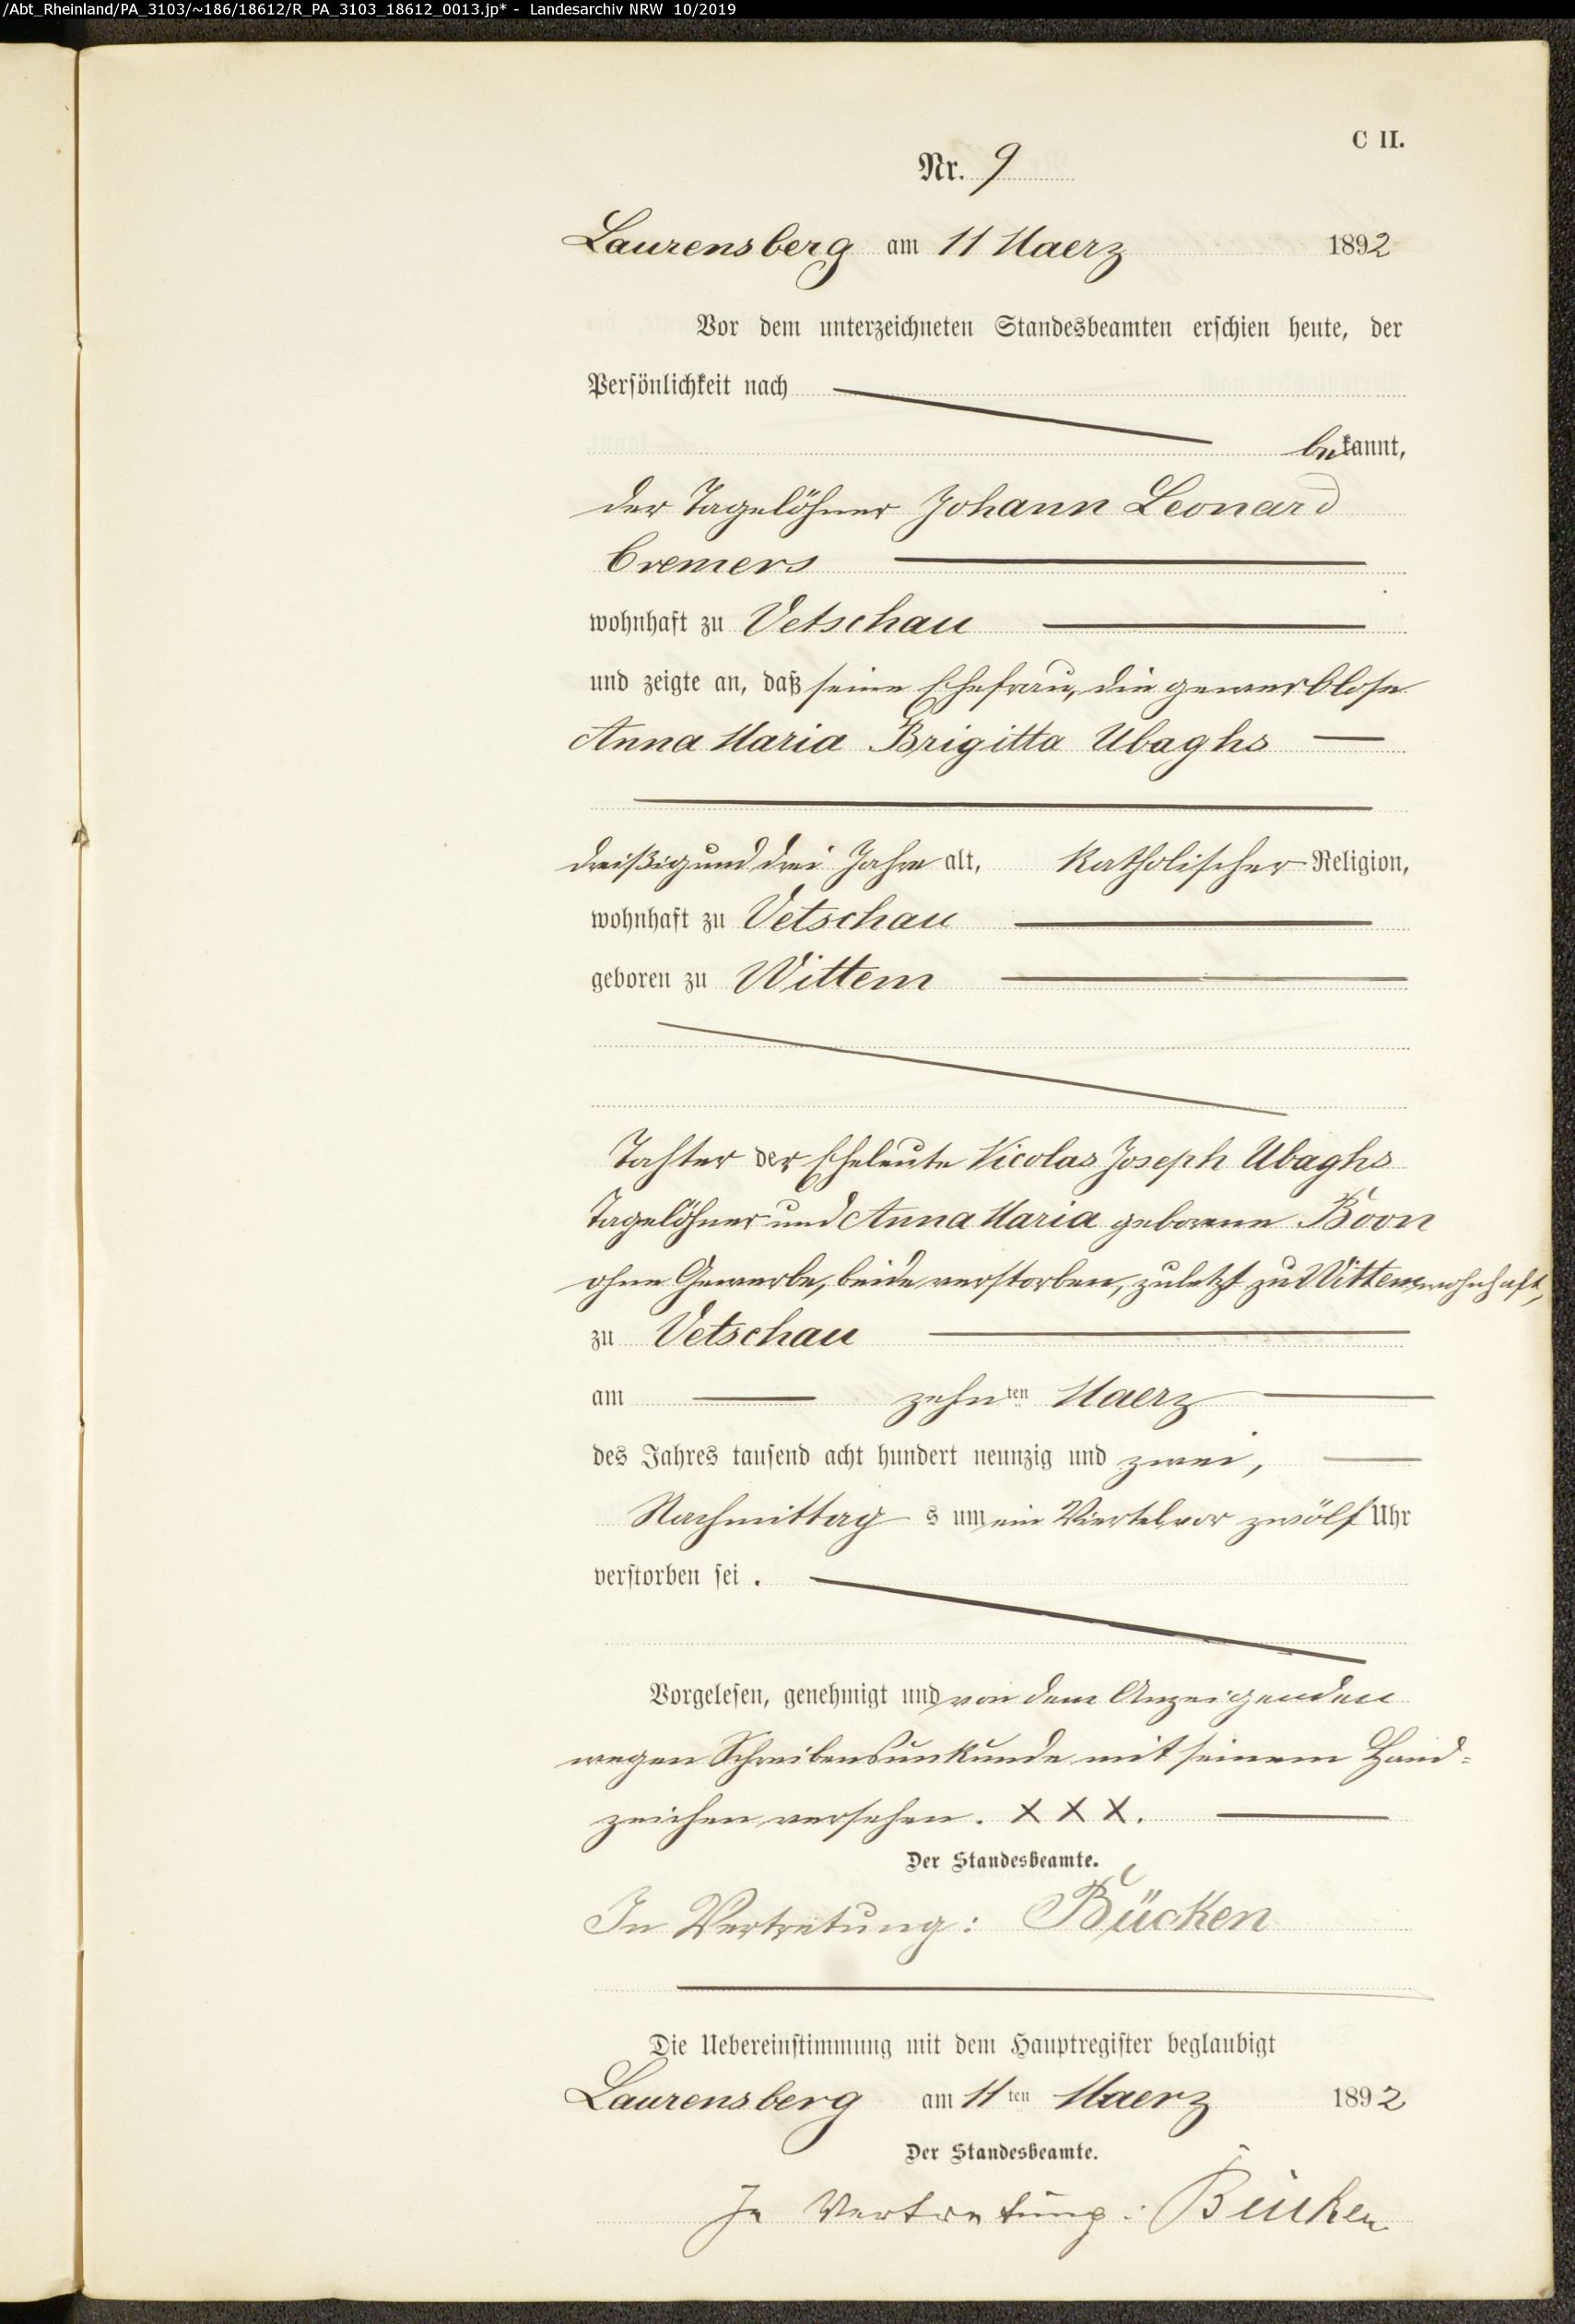 /Abt_Rheinland/PA_3103/~186/18612/R_PA_3103_18612_0013.jp* - Landesarchiv NRW 10/2019
C II.
Nr. 9
Laurensberg am 11 Maerz 1892
Vor dem unterzeichneten Standesbeamten erschien heute, der
Persönlichkeit nach
bekannt,
der Tagelöhner Johann Leonard
Cremers
wohnhaft zu Vetschau
und zeigte an, daß seine Ehefrau, die gewerblose
Anna Maria Brigitta Ubaghs
dreißig und drei Jahre alt, katholischer Religion,
wohnhaft zu Vetschau
geboren zu Wittem
Tochter der Eheleute Nicolas Joseph Ubaghs
Tagelöhner und Anna Maria geborene Boon
ohne Gewerbe, beide verstorben, zuletzt zu Wittem wohnhaft,
zu Vetschau
am zehnten Maerz
des Jahres tausend acht hundert neunzig und zwei,
Nachmittag s um ein Viertel vor zwölf Uhr
verstorben sei .
Vorgelesen, genehmigt und von dem Anzeigenden
wegen Schreibensunkunde mit seinem Hand=
zeichen versehen. X X X.
Der Standesbeamte.
In Vertretung: Bücken
Die Uebereinstimmung mit dem Hauptregister beglaubigt
Laurensberg am 11ten Maerz 1892
Der Standesbeamte.
In Vertretung: Bücken